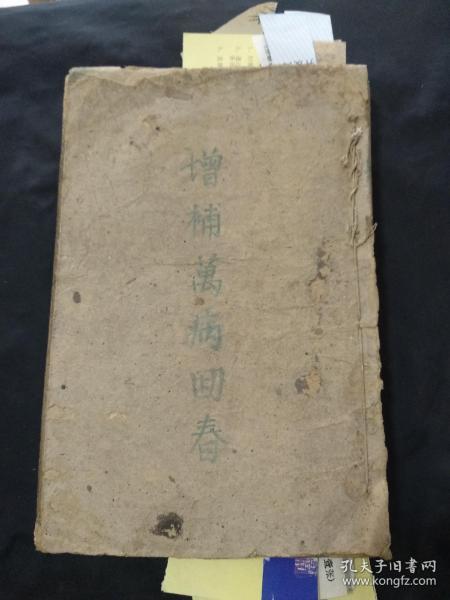 增補萬病回春
孔夫子旧书网
www.kongfz.com